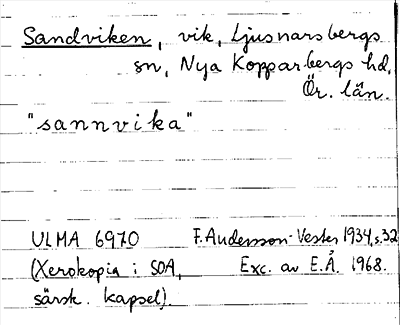 Sandviken, vik, Ljusnarsbergs
sn, Nya Kopparbergs hd,
Ör. län.
"sannvika"
ULMA 6970 F. Andersson-Vester 1934, s. 32
(Xerokopia i SOA, Exc. av E.Å. 1968.
särsk. kapsel).